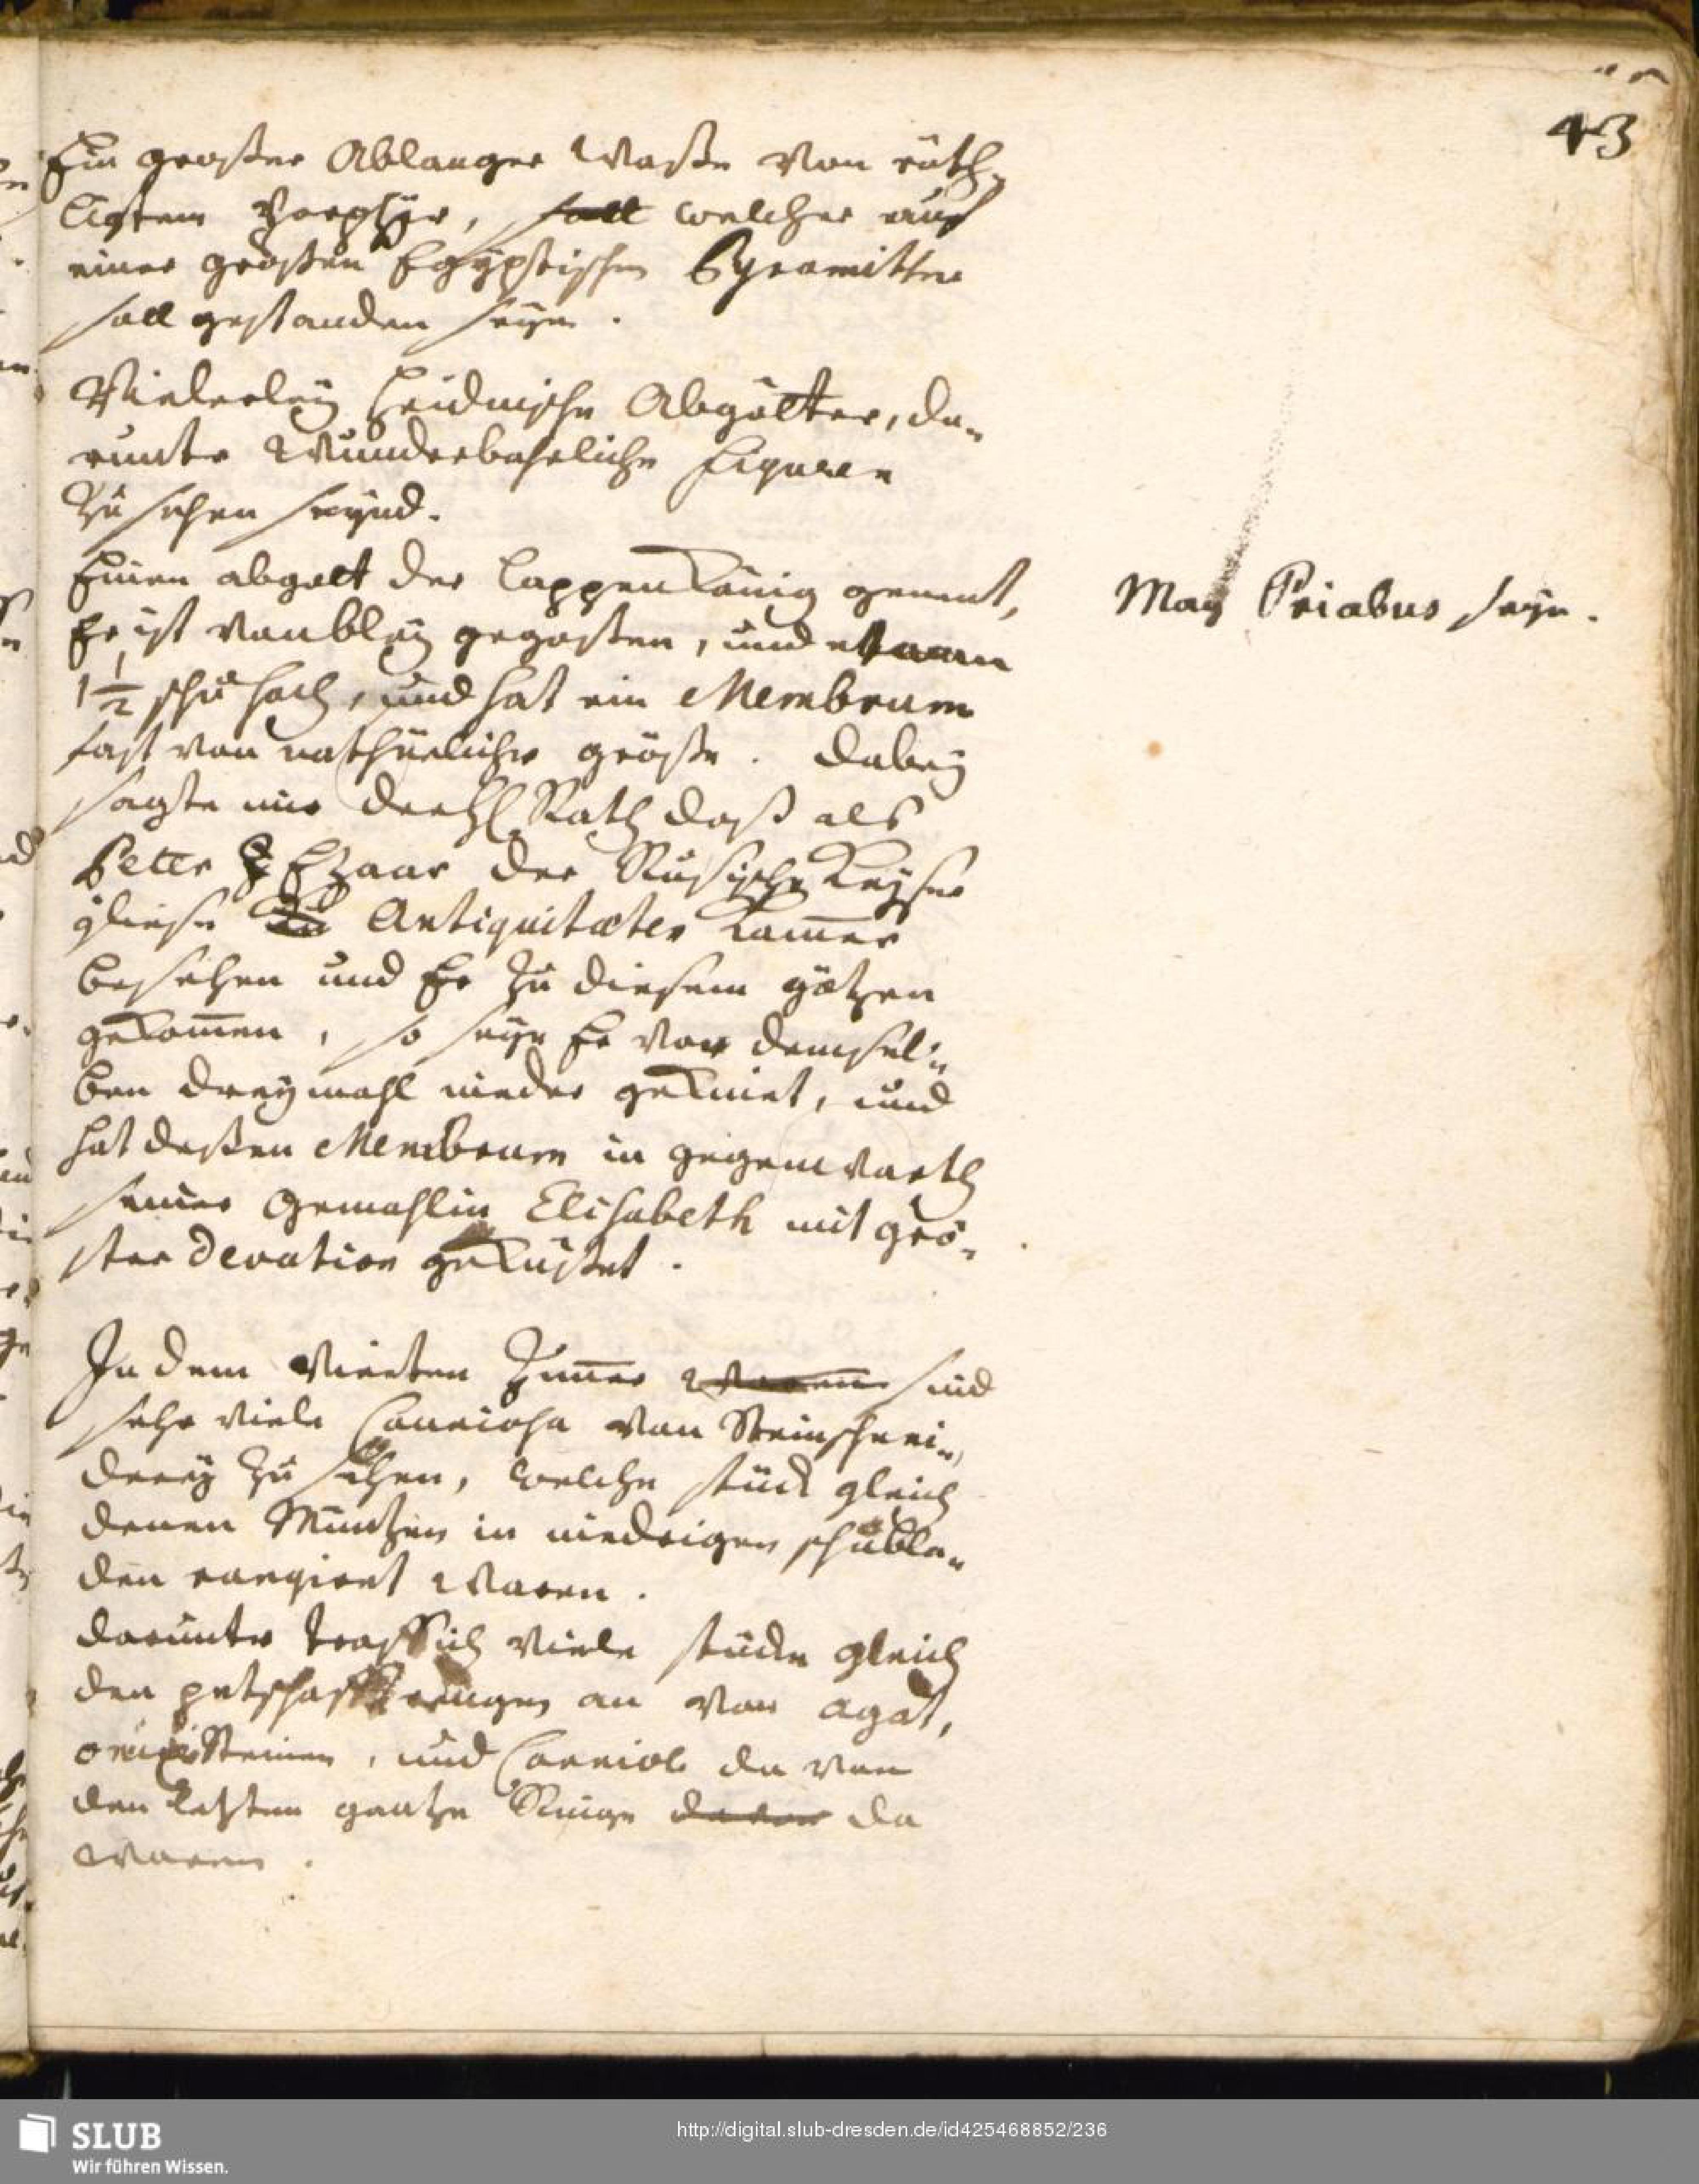 43
Ein großer Ablanger Waße von röth-
ligtem Porphyr, soll welcher auf
einer großen Egÿptischen Pyramitter
soll gestanden seÿn.
Vielerleÿ Heidnische Abgötter, da-
runter Wunderbahrliche Figuren
zu sehen seÿnd.
Einen abgott der Lappen König genent,
Er ist von bleÿ gegoßen, und etwan
1 1/2 schu hoch, und hat ein Membrum
fast von nathürlicher größe. Dabeÿ
sagte mir der H. Rath daß als
Peter Czaar der Rusische Keÿser
die Antiquitæten Kam̄er
besehen und Er zu diesem götzen
gekom̄en, so seÿe Er vor demsel-
ben dreÿmahl nieder gekniet, und
hat deßen Membrum in gegenwarth
seiner Gemahlin Elisabeth mit grö-
ster Devotion geküßet.
May Priabus seÿn.
In dem Vierten Zim̄er waren sind
sehr viele Corniohe von Steinschnei-
dereÿ zu sehen, welche stück gleich
denen Müntzen in niedrigen schubla-
den rangiret waren.
darunter traff ich viele stücke gleich
den petschafft ringen an von agat,
steinen, und Corniol da von
den letzten gantze Ringe davon da
waren.
SLUB
Wir führen Wissen.
http://digital.slub-dresden.de/id425468852/236